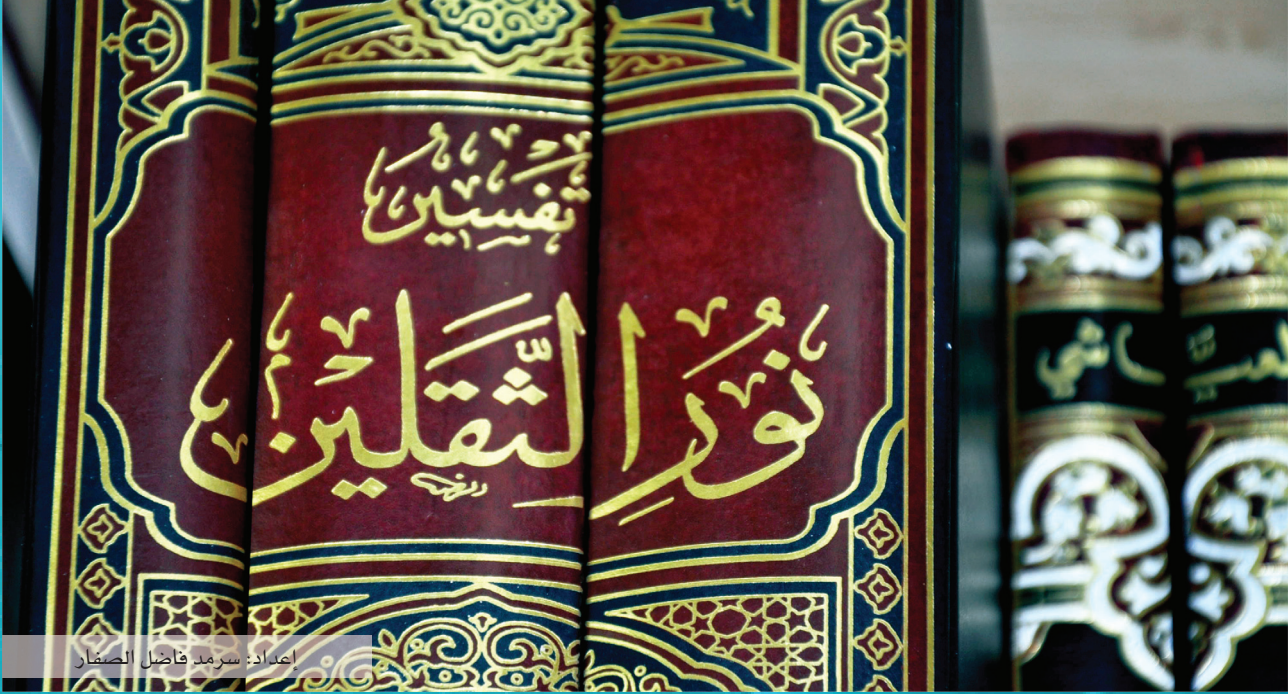 تفسير
نور الثقلين
العياشي
إعداد: سرمد فاضل الصفار